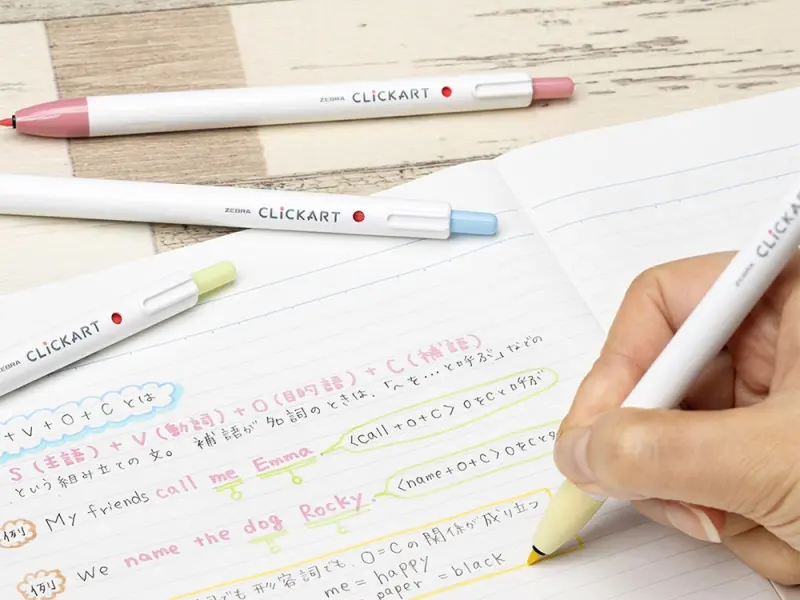 ZEBRA CLiCKART
ZEBRA CLiCKART
ZEBRA CLiCKART
ZEBRA CLICKA
+V+O+Cとは
S(主語)+V(動詞)+O(目的語)+C(補語)
という組み立ての文。補語が名詞のときは、「〜を…と呼ぶ」などの
例 My friends call me Emma. <call+O+C> OをCと呼ぶ
例 We name the dog Rocky. <name+O+C> OをCと
でも形容詞でも、O=Cの関係が成り立つ
me = happy
paper = black